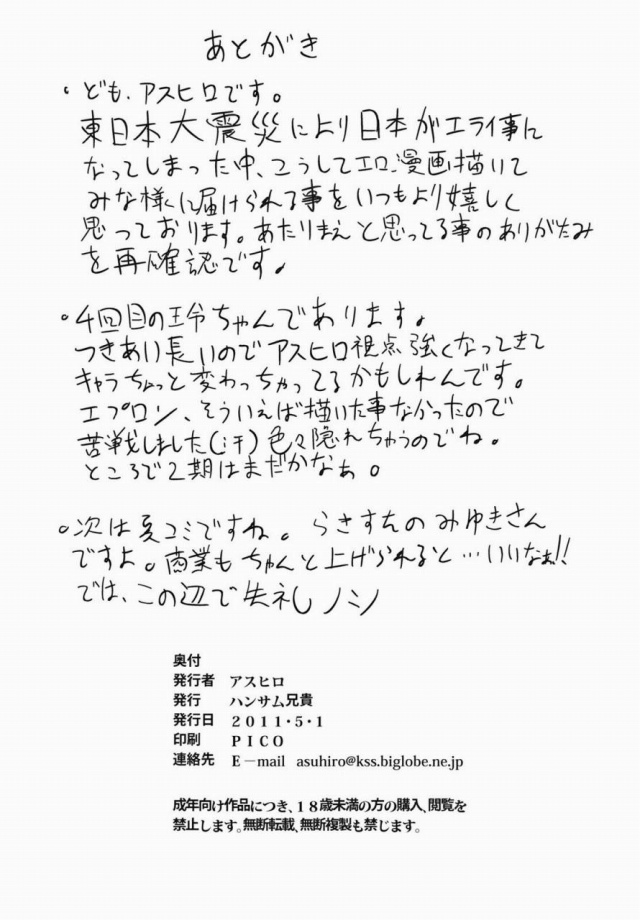 あとがき
・ども、アスヒロです。
東日本大震災により日本がエライ事に
なってしまった中、こうしてエロ漫画描いて
みな様に届けられる事をいつもより嬉しく
思っております。あたりまえと思ってる事のありがたみ
を再確認です。
。4回目の玲ちゃんであります。
つきあい長いのでアスヒロ視点強くなってきて
キャラちょっと変わっちゃってるかもしれんです。
エプロン、そういえば描いた事なかったので
苦戦しました(汗)色々隠れちゃうのでね。
ところで2期はまだかなぁ。
。次は夏コミですね。らきすたのみゆきさん
ですよ。商業もちゃんと上げられると…いいなぁ!!
では、この辺で失礼ノシ
奥付
発行者 アスヒロ
発行 ハンサム兄貴
発行日 2011・5・1
印刷 PICO
連絡先 E－mail asuhiro@kss.biglobe.ne.jp
成年向け作品につき、18歳未満の方の購入、閲覧を
禁止します。無断転載、無断複製も禁じます。